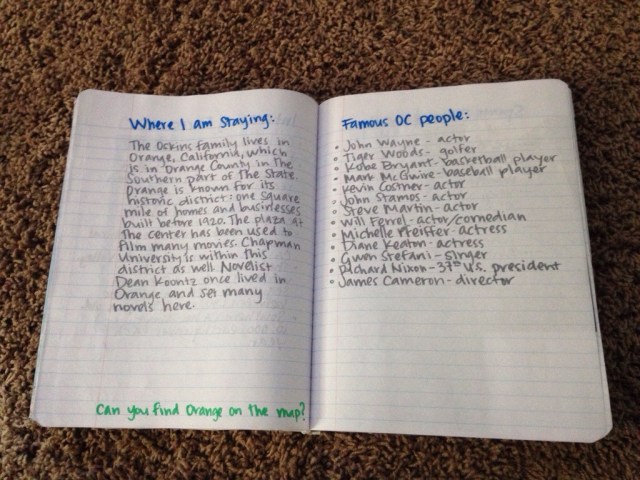 Where I am Staying:
The Ockins family lives in
Orange, California, which
is in Orange County in the
Southern part of the State.
Orange is known for its
historic district: one square
mile of homes and businesses
built before 1920. The plaza at
the center has been used to
film many movies. Chapman
University is within this
district as well. Novelist
Dean Koontz once lived in
Orange and set many
novels here.
Can you find Orange on the map?
Famous OC people:
• John Wayne - actor
• Tiger Woods - golfer
• Kobe Bryant - basketball player
• Mark McGwire - baseball player
• Kevin Costner - actor
• John Stamos - actor
• Steve Martin - actor
• Will Ferrel - actor/comedian
• Michelle Pfeiffer - actress
• Diane Keaton - actress
• Gwen Stefani - singer
• Richard Nixon - 37th U.S. president
• James Cameron - director